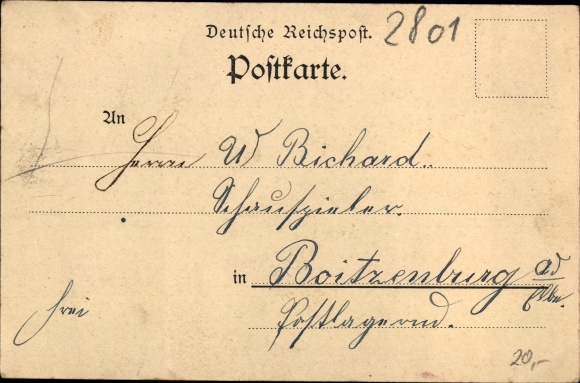 Deutsche Reichspost. 2801
Postkarte.
An Herrn W Richard.
Schauspieler.
in Boitzenburg a/d Elbe.
frei Postlagernd.
20,-